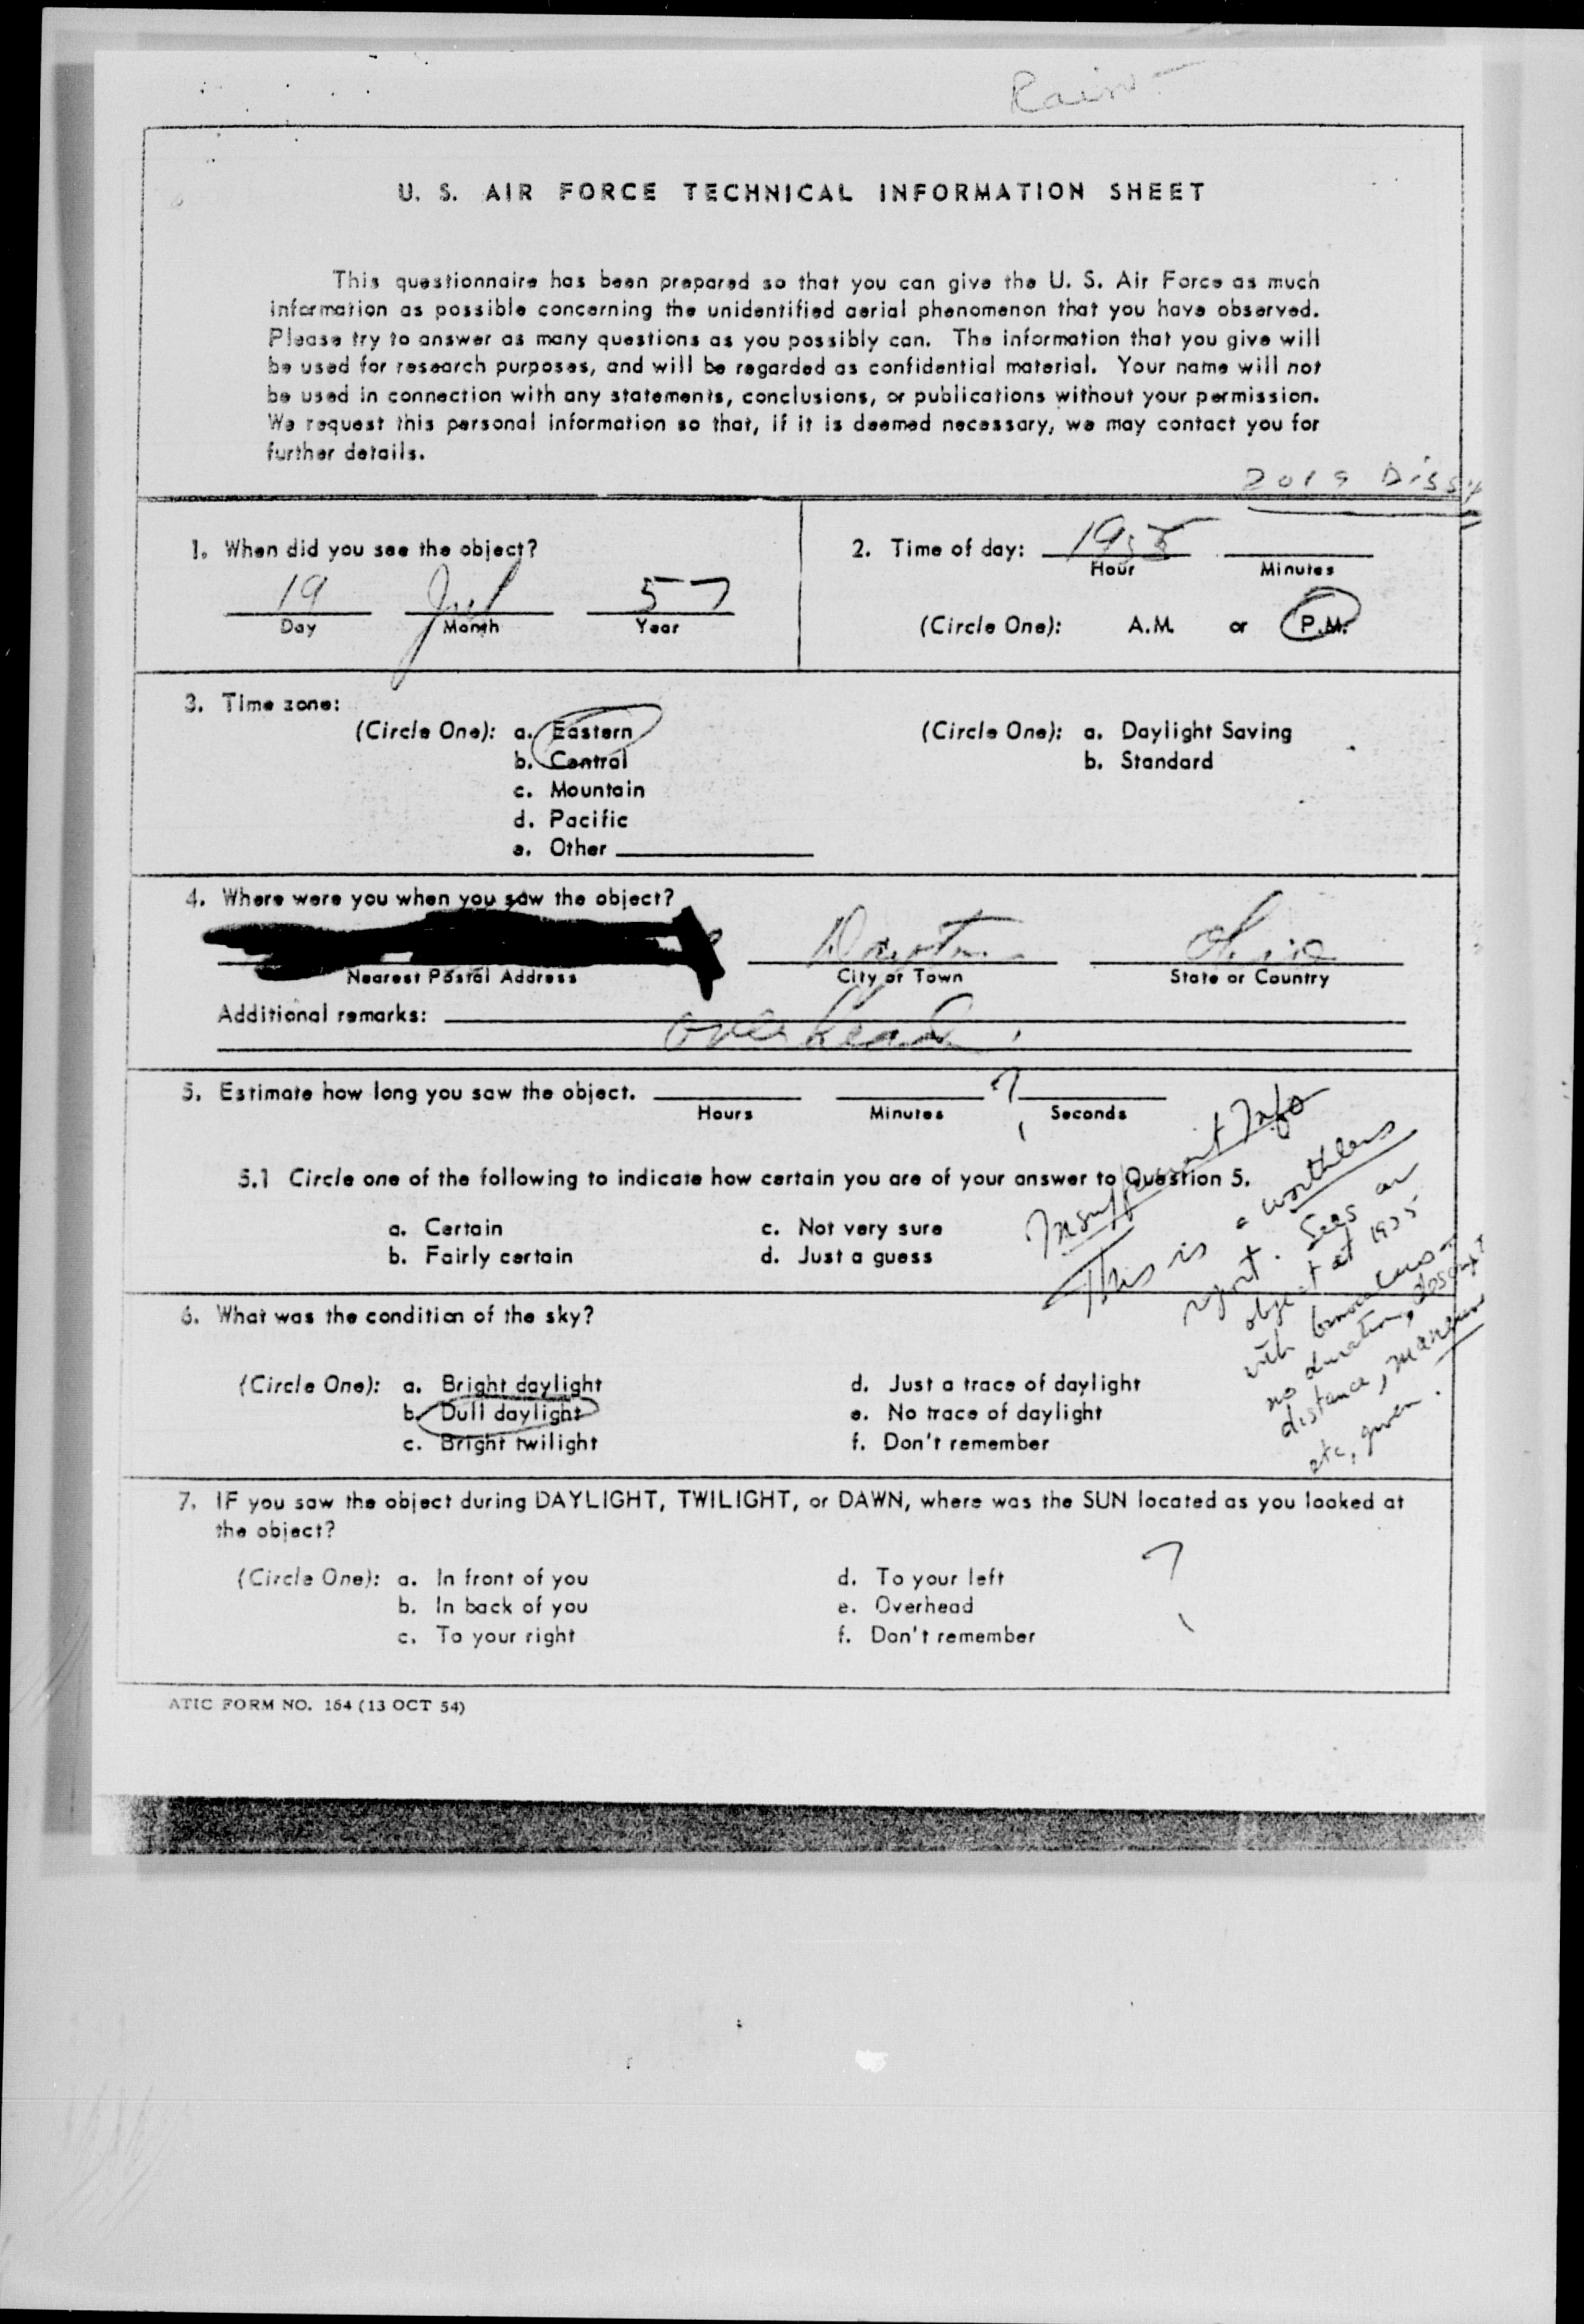 Rain
U. S. AIR FORCE TECHNICAL INFORMATION SHEET
This questionnaire has been prepared so that you can give the U. S. Air Force as much
information as possible concerning the unidentified aerial phenomenon that you have observed.
Please try to answer as many questions as you possibly can. The information that you give will
be used for research purposes, and will be regarded as confidential material. Your name will not
be used in connection with any statements, conclusions, or publications without your permission.
We request this personal information so that, if it is deemed necessary, we may contact you for
further details.
1. When did you see the object?
19 Jul 57
Day Month Year
2. Time of day:
Hour Minutes
(Circle One): A.M. or P.M.
3. Time zone:
(Circle One): a. Eastern
b. Central
c. Mountain
d. Pacific
e. Other
(Circle One): a. Daylight Saving
b. Standard
4. Where were you when you saw the object?
Dayton Ohio
Nearest Postal Address City or Town State or Country
Additional remarks:
overhead
5. Estimate how long you saw the object. ?
Hours Minutes Seconds
5.1 Circle one of the following to indicate how certain you are of your answer to Question 5.
a. Certain c. Not very sure
b. Fairly certain d. Just a guess
Insufficient Info
This is a worthless
report. Sees an
object at
with binoculars -
no duration,
distance,
etc, given.
6. What was the condition of the sky?
(Circle One): a. Bright daylight d. Just a trace of daylight
b. Dull daylight e. No trace of daylight
c. Bright twilight f. Don't remember
7. IF you saw the object during DAYLIGHT, TWILIGHT, or DAWN, where was the SUN located as you looked at
the object?
(Circle One): a. In front of you d. To your left ?
b. In back of you e. Overhead
c. To your right f. Don't remember
ATIC FORM NO. 164 (13 OCT 54)